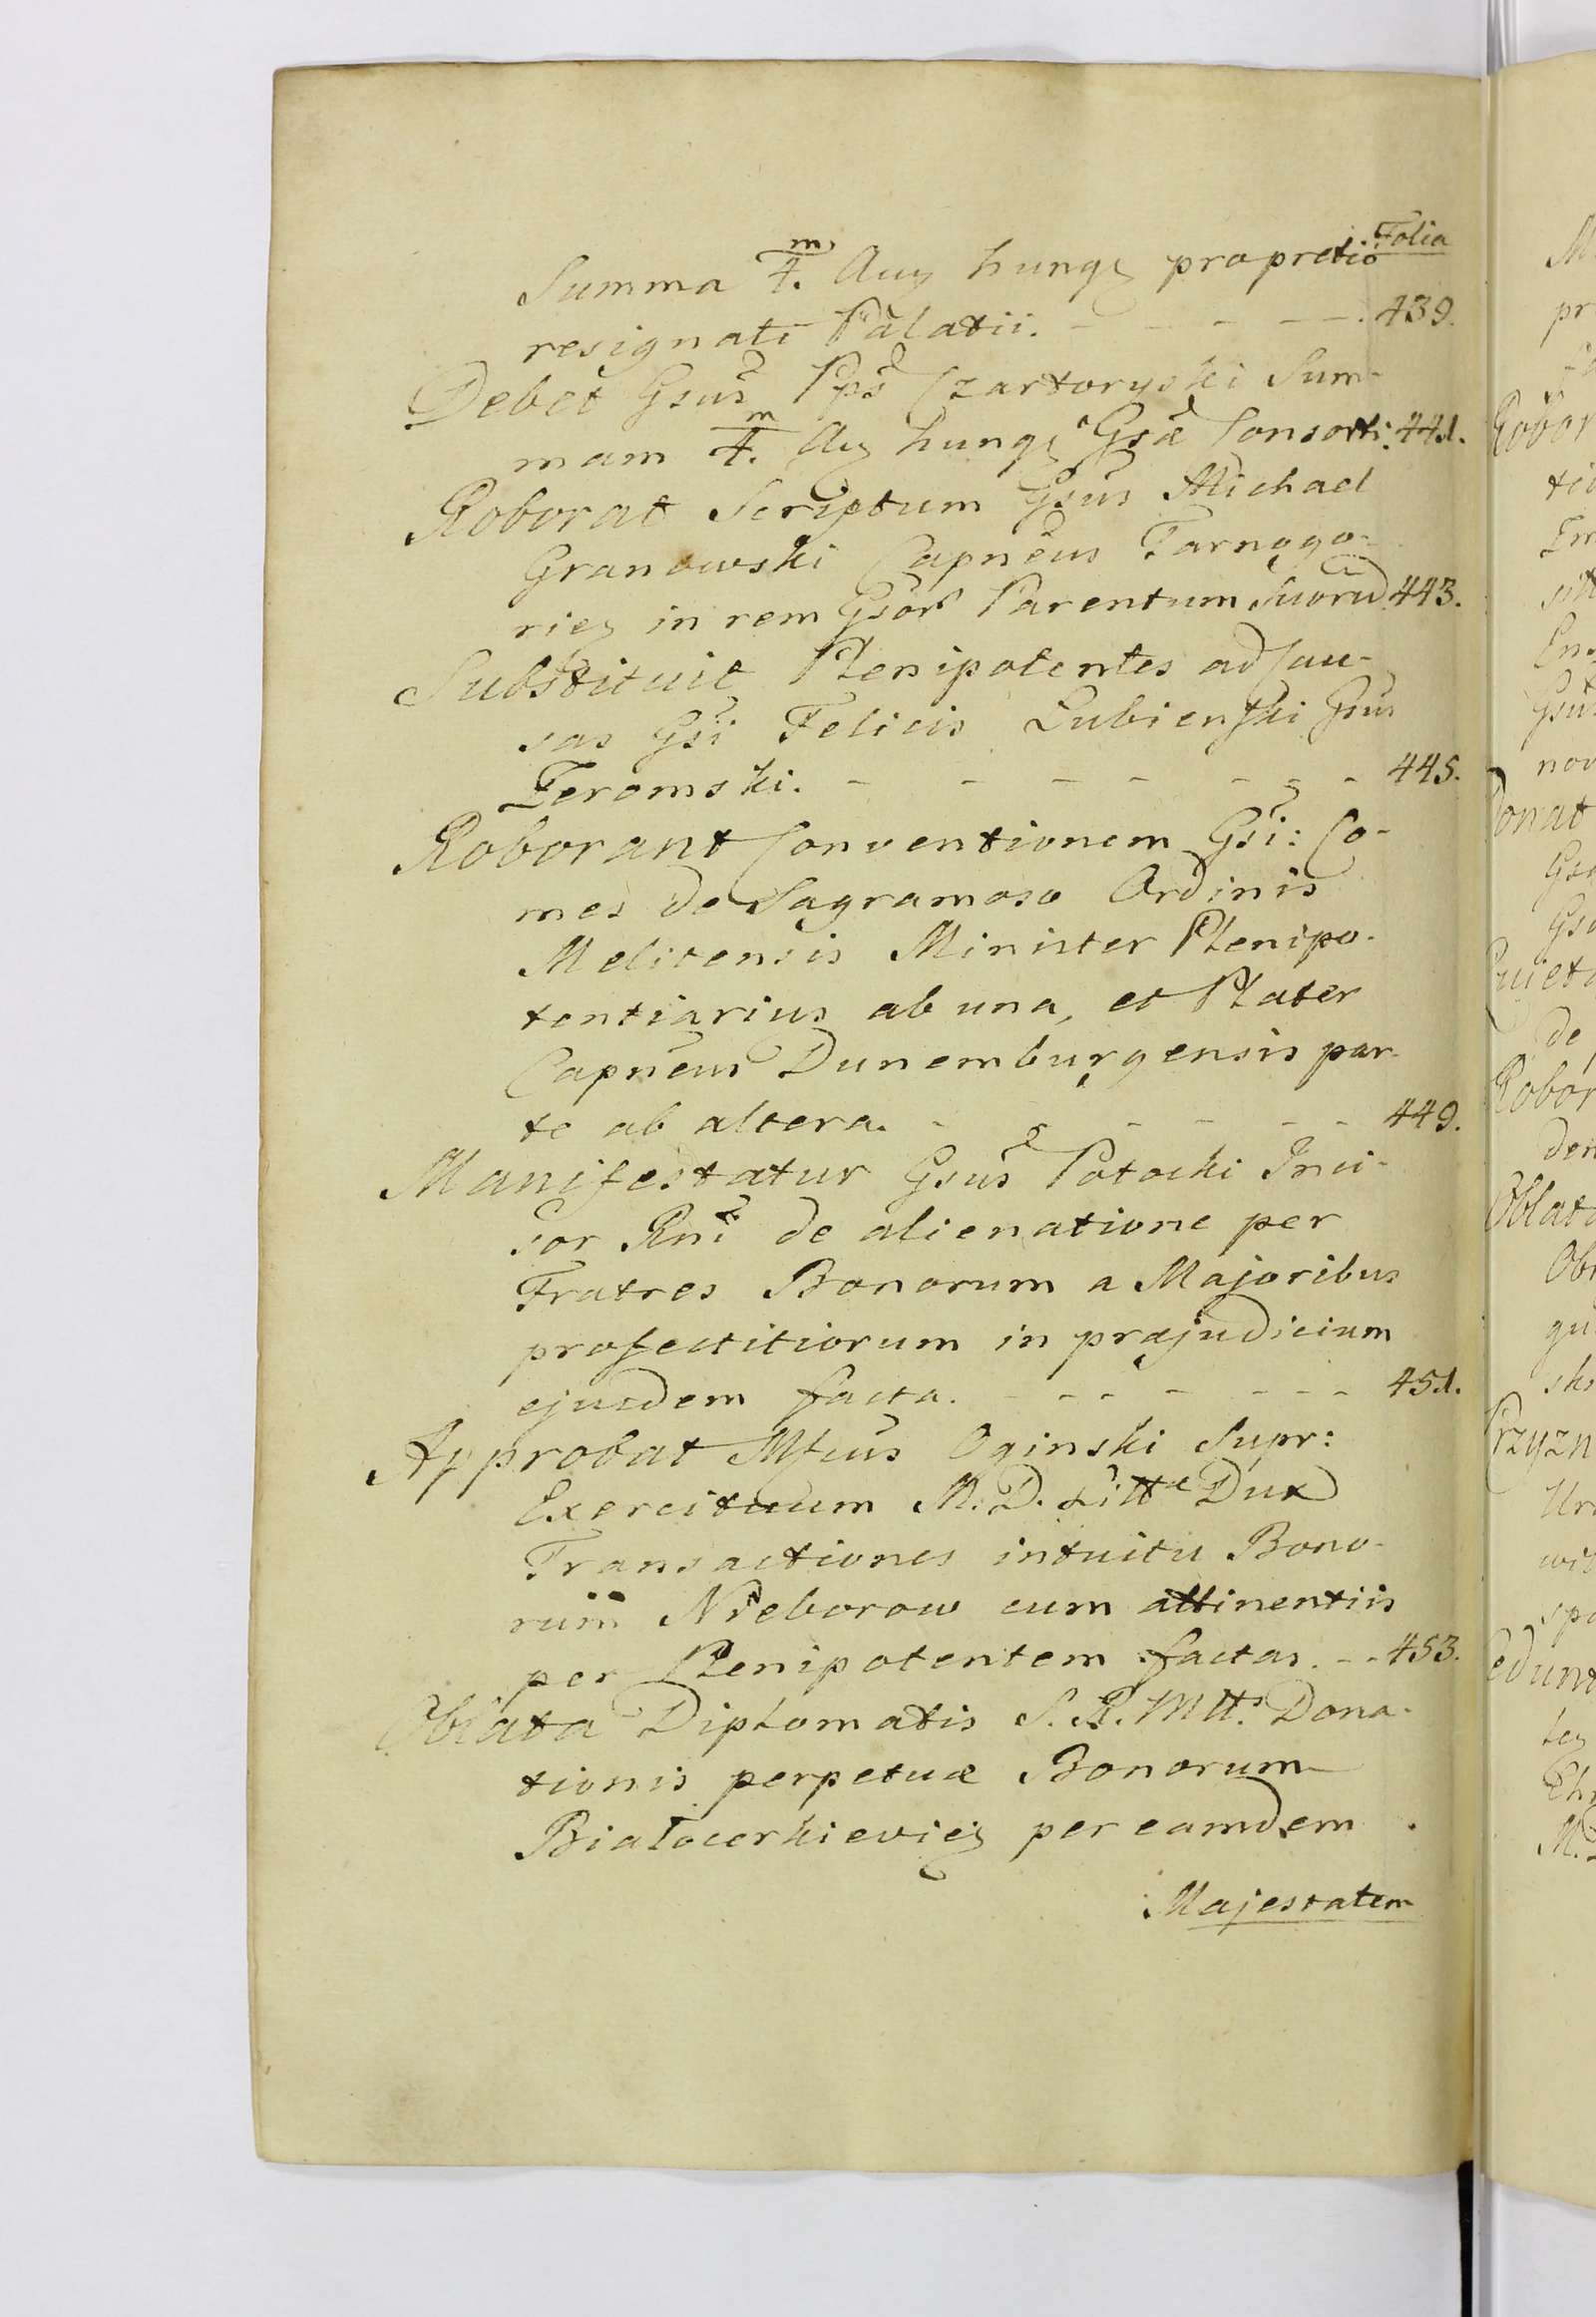 Folia
Summa 4.m Aur hungr pro pretio
resignati Palatii. - - - - 439.
Debet Gsus Pps Czartoryski Sum-
mam 4.m Aur hungr Gsæ Consorti. 441.
Roborat Scriptum Gsus Michael
Granowski Capneus Tarnogo-
rien in rem Gsor Parentum suorũ 443.
Substituit Plenipotentes ad Cau-
sas Gsi Felicis Lubienski Gsus
Zeromski. - - - - - - - 445.
Roborant Conventionem Gsi: Co-
mes de Sagramoso Ordinis
Melitensis Minister Plenipo-
tentiarius ab una, et Plater
Capneus Dunemburgensis par-
te ab altera. - - - - - - 449.
Manifestatur Gsus Potocki Inci-
sor Rni de alienatione per
Fratres Bonorum a Majoribus
profectitiorum in præjudicium
ejusdem facta. - - - - - - - 451.
Approbat Mfcus Oginski Supr:
Exercituum M. D. Litt Dux
Transactiones intuitu Bono-
rum Nieborow cum attinentiis
per Plenipotentem factas. - - 453.
Oblata Diplomatis S. R. Mtts Dona-
tionis perpetuæ Bonorum
Białocerkievien per eamdem
Majestatem